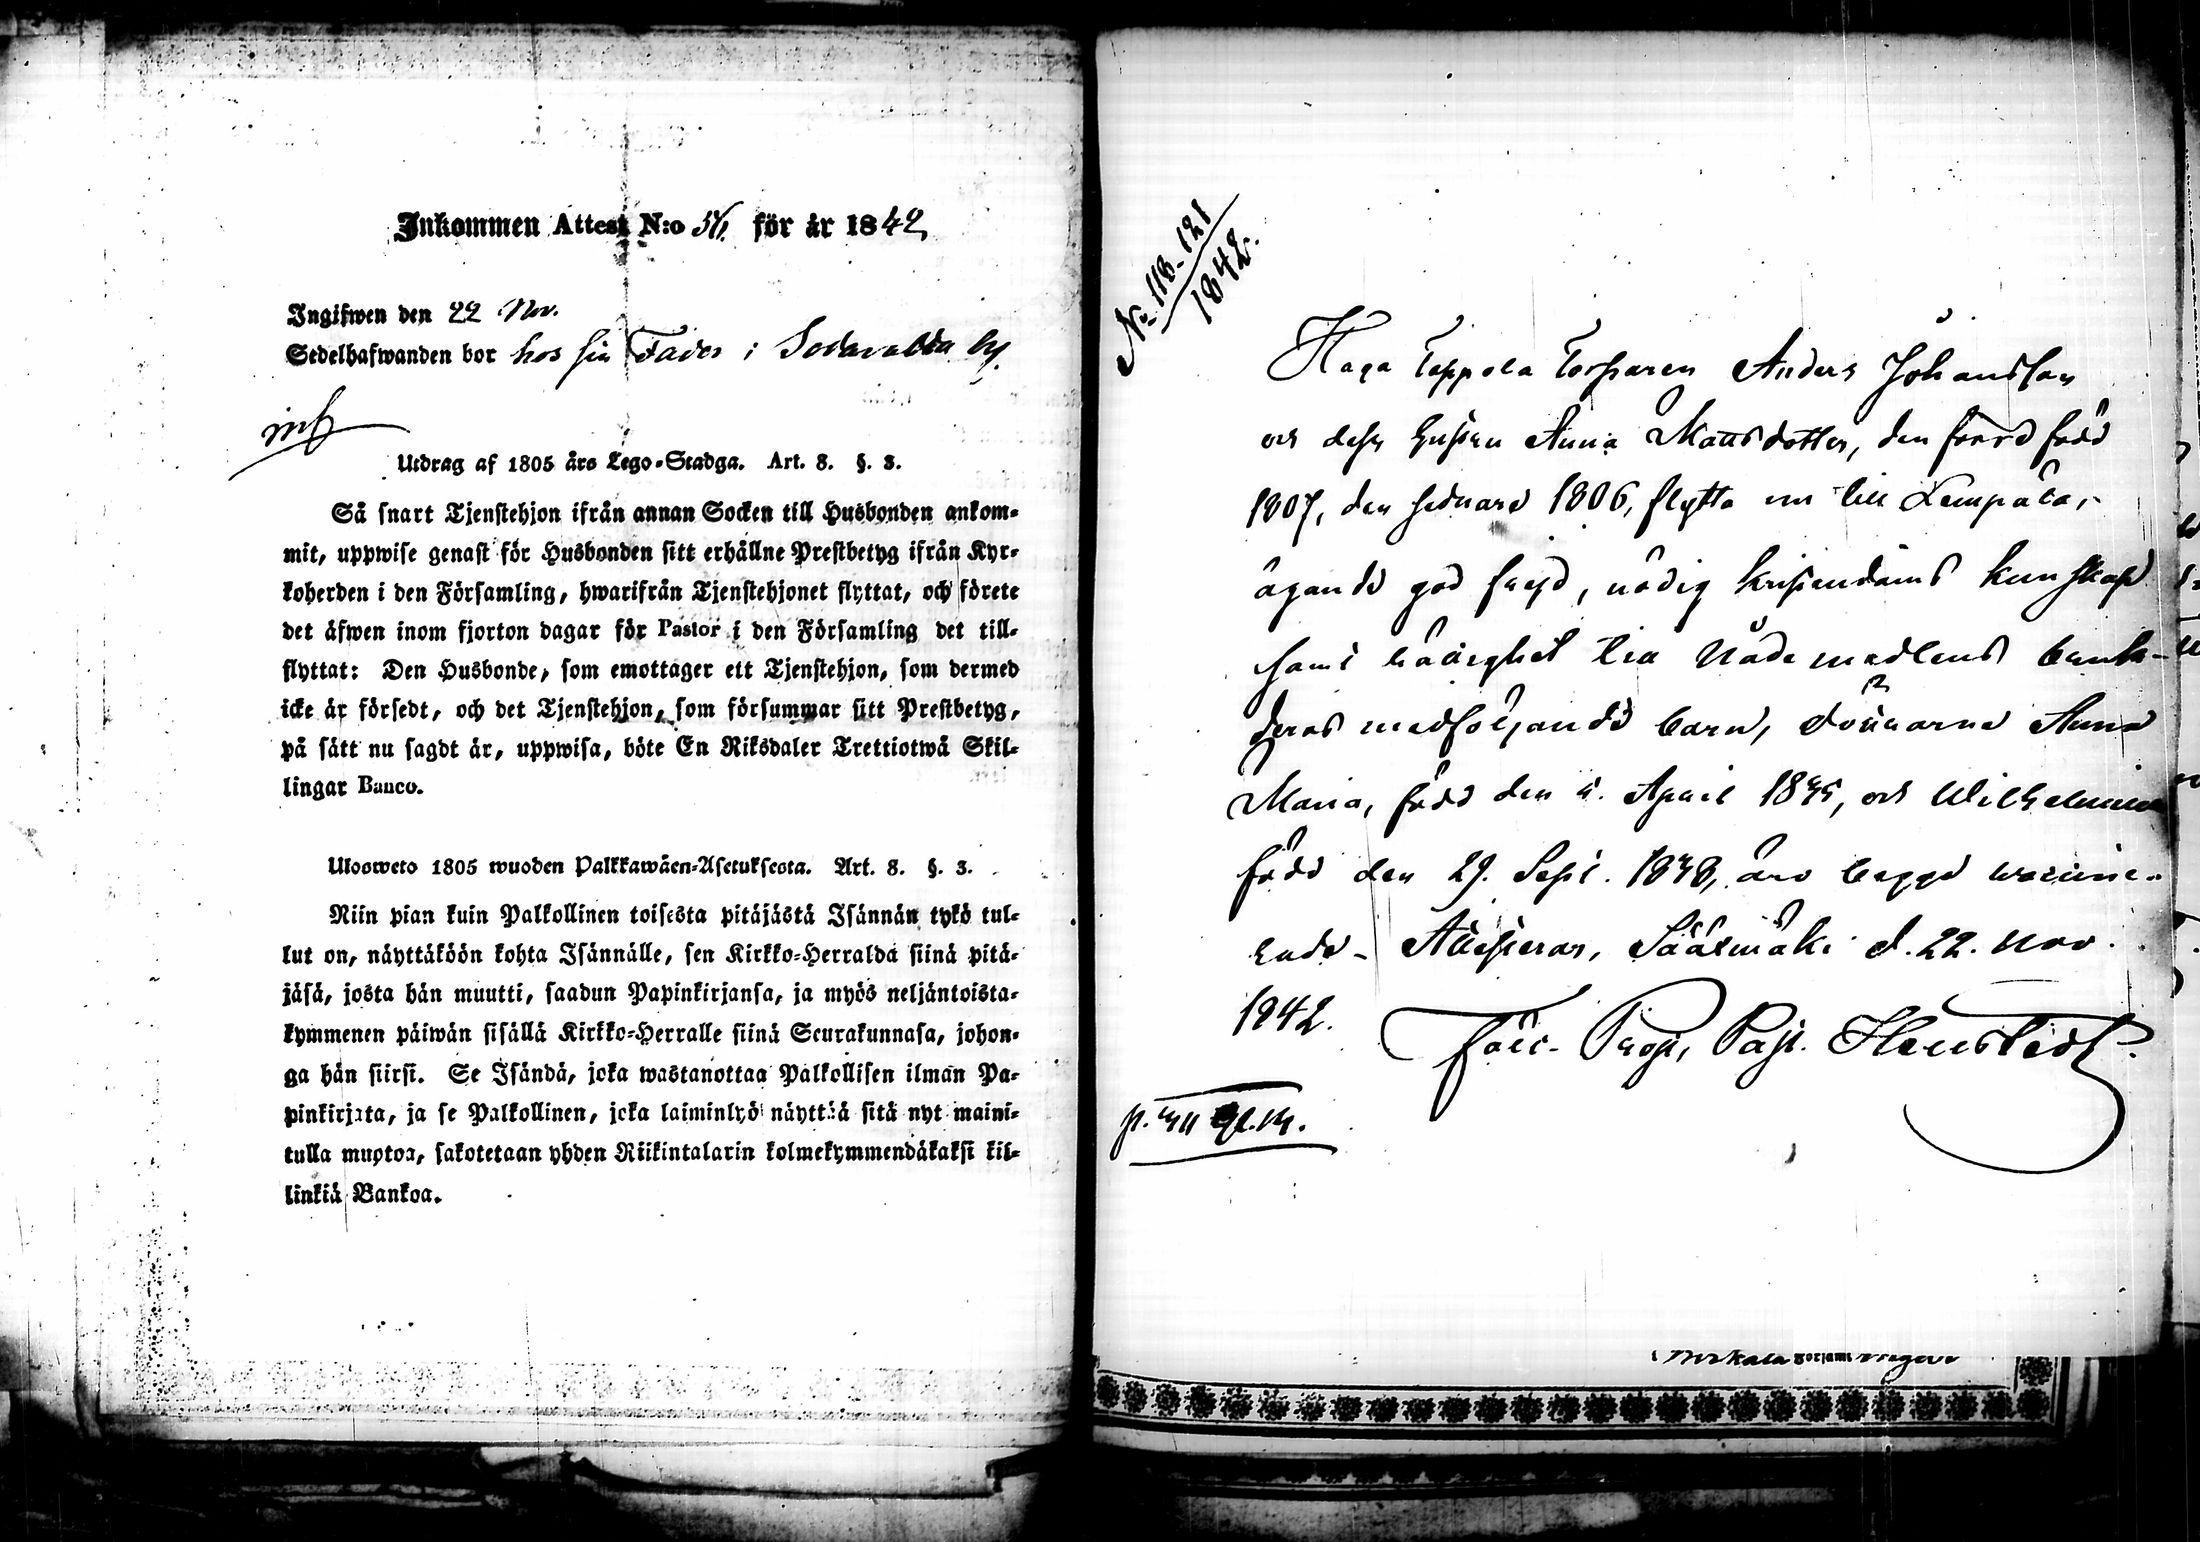 Inkommen Attest N:o 56. för år 1842,
Ingifwen den 22 Nov.
Sedelhafwanden bor hos sin Fader i Sotavalda by.
inf
Utdrag af 1805 års Lego-Stadga. Art. 8. §. 3.
Så snart Tjenstehjon ifrån annan Socken till Husbonden ankom-
mit, uppwise genast för Husbonden sitt erhållne Prestbetyg ifrån Kyr-
koherden i den Församling, hwarifrån Tjenstehjonet flyttat, och förete
det äfwen inom fjorton dagar för Pastor i den Församling det till-
flyttat: Den Husbonde, som emottager ett Tjenstehjon, som dermed
icke är försedt, och det Tjenstehjon, som försummar sitt Prestbetyg,
på sätt nu sagdt är, uppwisa, böte En Riksdaler Trettiotwå Skil-
lingar Banco.
Ulosweto 1805 wuoden Palkkawäen-Asetuksesta. Art. 8. §. 3.
Niin pian kuin Palkollinen toisesta pitäjästä Isännän tykö tul-
lut on, näyttäköön kohta Isännälle, sen Kirkko-Herralda siinä pitä-
jäsä, josta hän muutti, saadun Papinkirjansa, ja myös neljäntoista-
kymmenen päiwän sisällä Kirkko-Herralle siinä Seurakunnasa, johon-
ga hän siirsi. Se Isändä, joka wastanottaa Palkollisen ilman Pa-
pinkirjata, ja se Palkollinen, joka laiminlyö näyttää sitä nyt maini-
tulla muotoa, sakotetaan yhden Riikintalarin kolmekymmendäkaksi kil-
linkiä Bankoa.
No 118-121
1842.
Haga Toppola Torparen Anders Johansson
och dess hustru Anna Mattsdotter, den förrd född
1807, den sednare 1806, flytta nu till Lempäla,
ägande god frejd, nödig kristendoms kunskap
samt låflighet till Nådemedlens bruk-
deras medföljande barn, döttrarne Anna
Maria, född den 5. April 1835, och Wilhelmina
född den 29. Sept. 1838, äro begge waccine-
rade - Attesteras, Sääksmäki d. 22. Nov.
1842.
Förr. Prost, Past. Hellstedt.